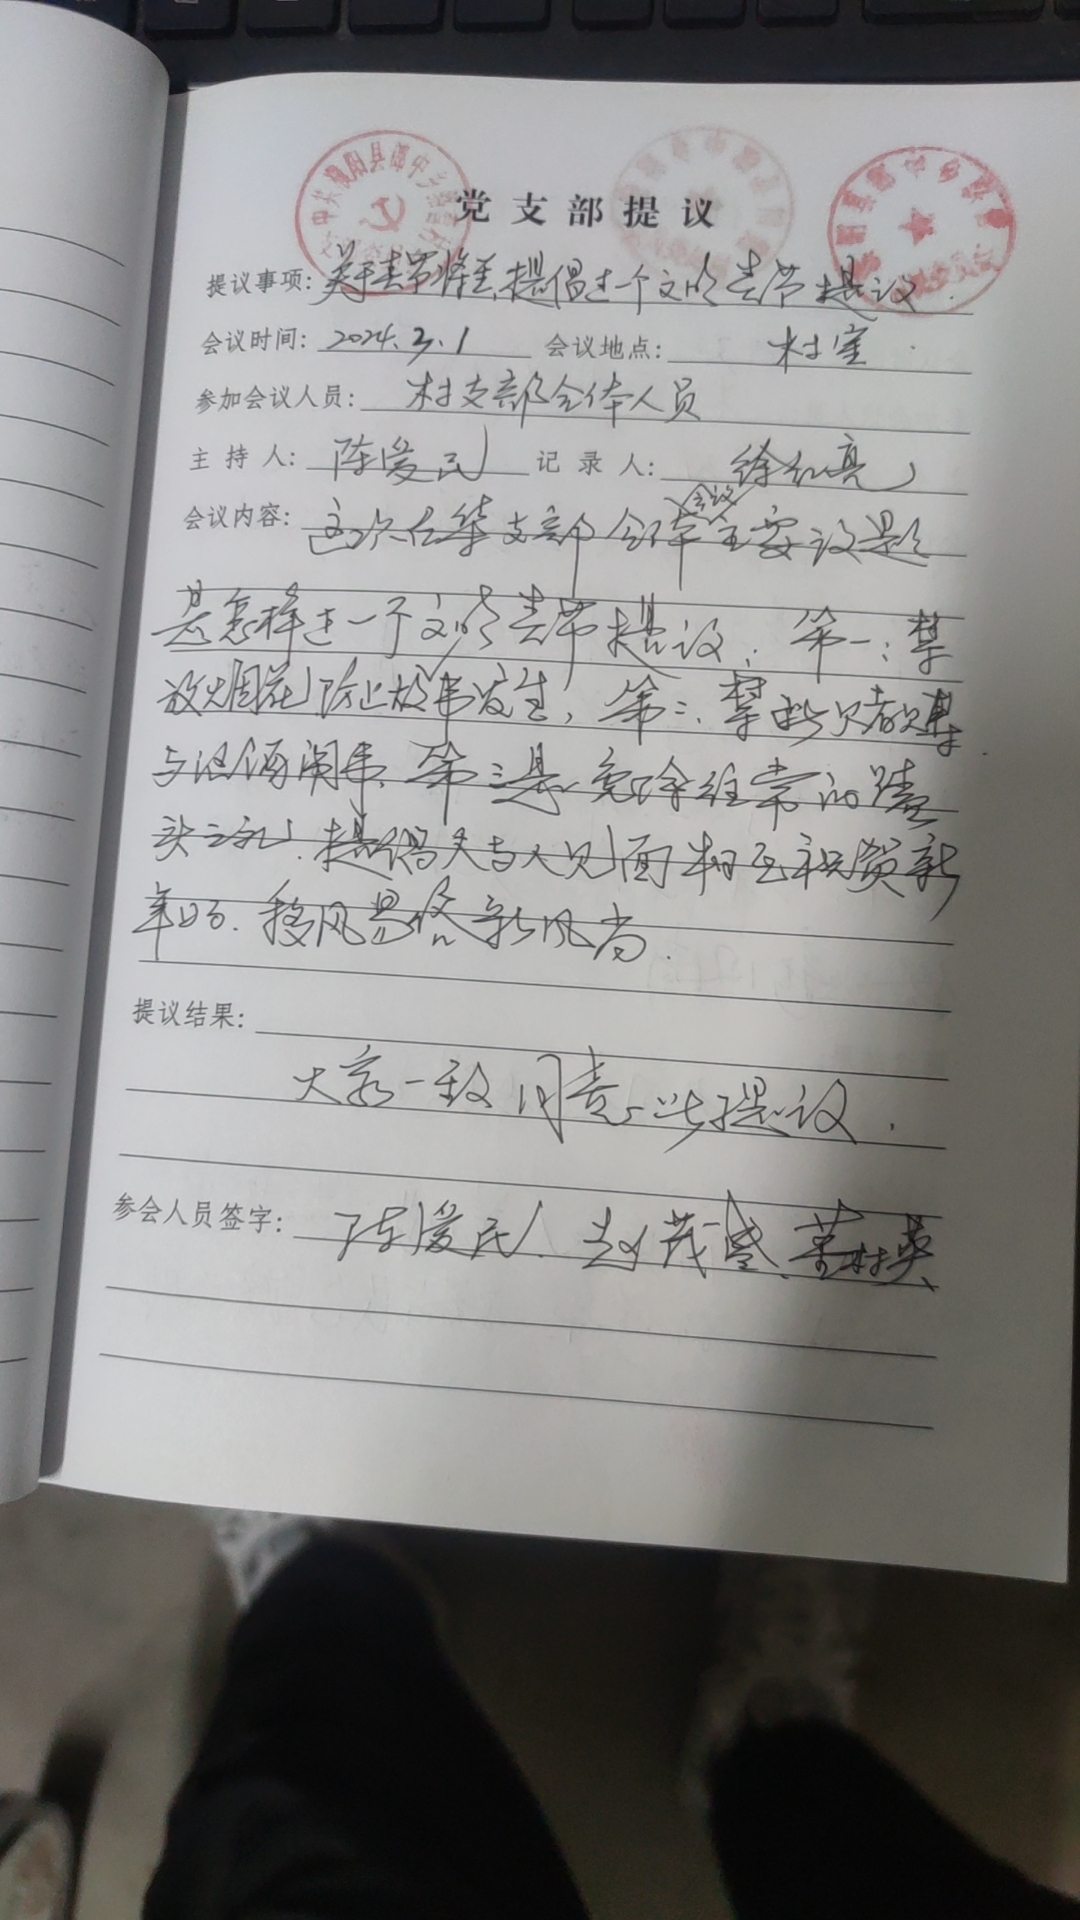 党支部提议
提议事项: 关于春节将至,提倡过一个文明春节提议.
会议时间: 2024.2.1 会议地点: 村室
参加会议人员: 村支部全体人员
主持人: 陈爱民 记录人: 徐红亮
会议内容: 这次召集支部全体会议主要议题
是怎样过一个文明春节提议: 第一:禁
放烟花防止故事发生, 第二、禁赌
与酒闹事、第三是免除往常的磕
头之礼、提倡人与人见面相互祝贺新
年好. 移风易俗新风尚.
提议结果:
大家一致同意此提议.
参会人员签字: 陈爱民、赵茂、英